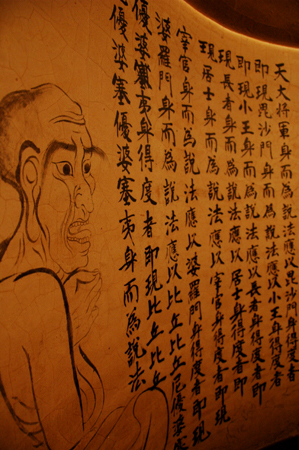 天大將軍身而為說法應以毗沙門身得度者
即現毗沙門身而為說法應以小王身得度者
即現小王身而為說法應以長者身得度者即
現長者身而為說法應以居士身得度者即
現居士身而為說法應以宰官身得度者即現
宰官身而為說法應以婆羅門身得度者即現
婆羅門身而為說法應以比丘比丘尼優婆塞
優婆塞夷身得度者即現比丘比丘
優婆塞優婆塞夷身而為說法